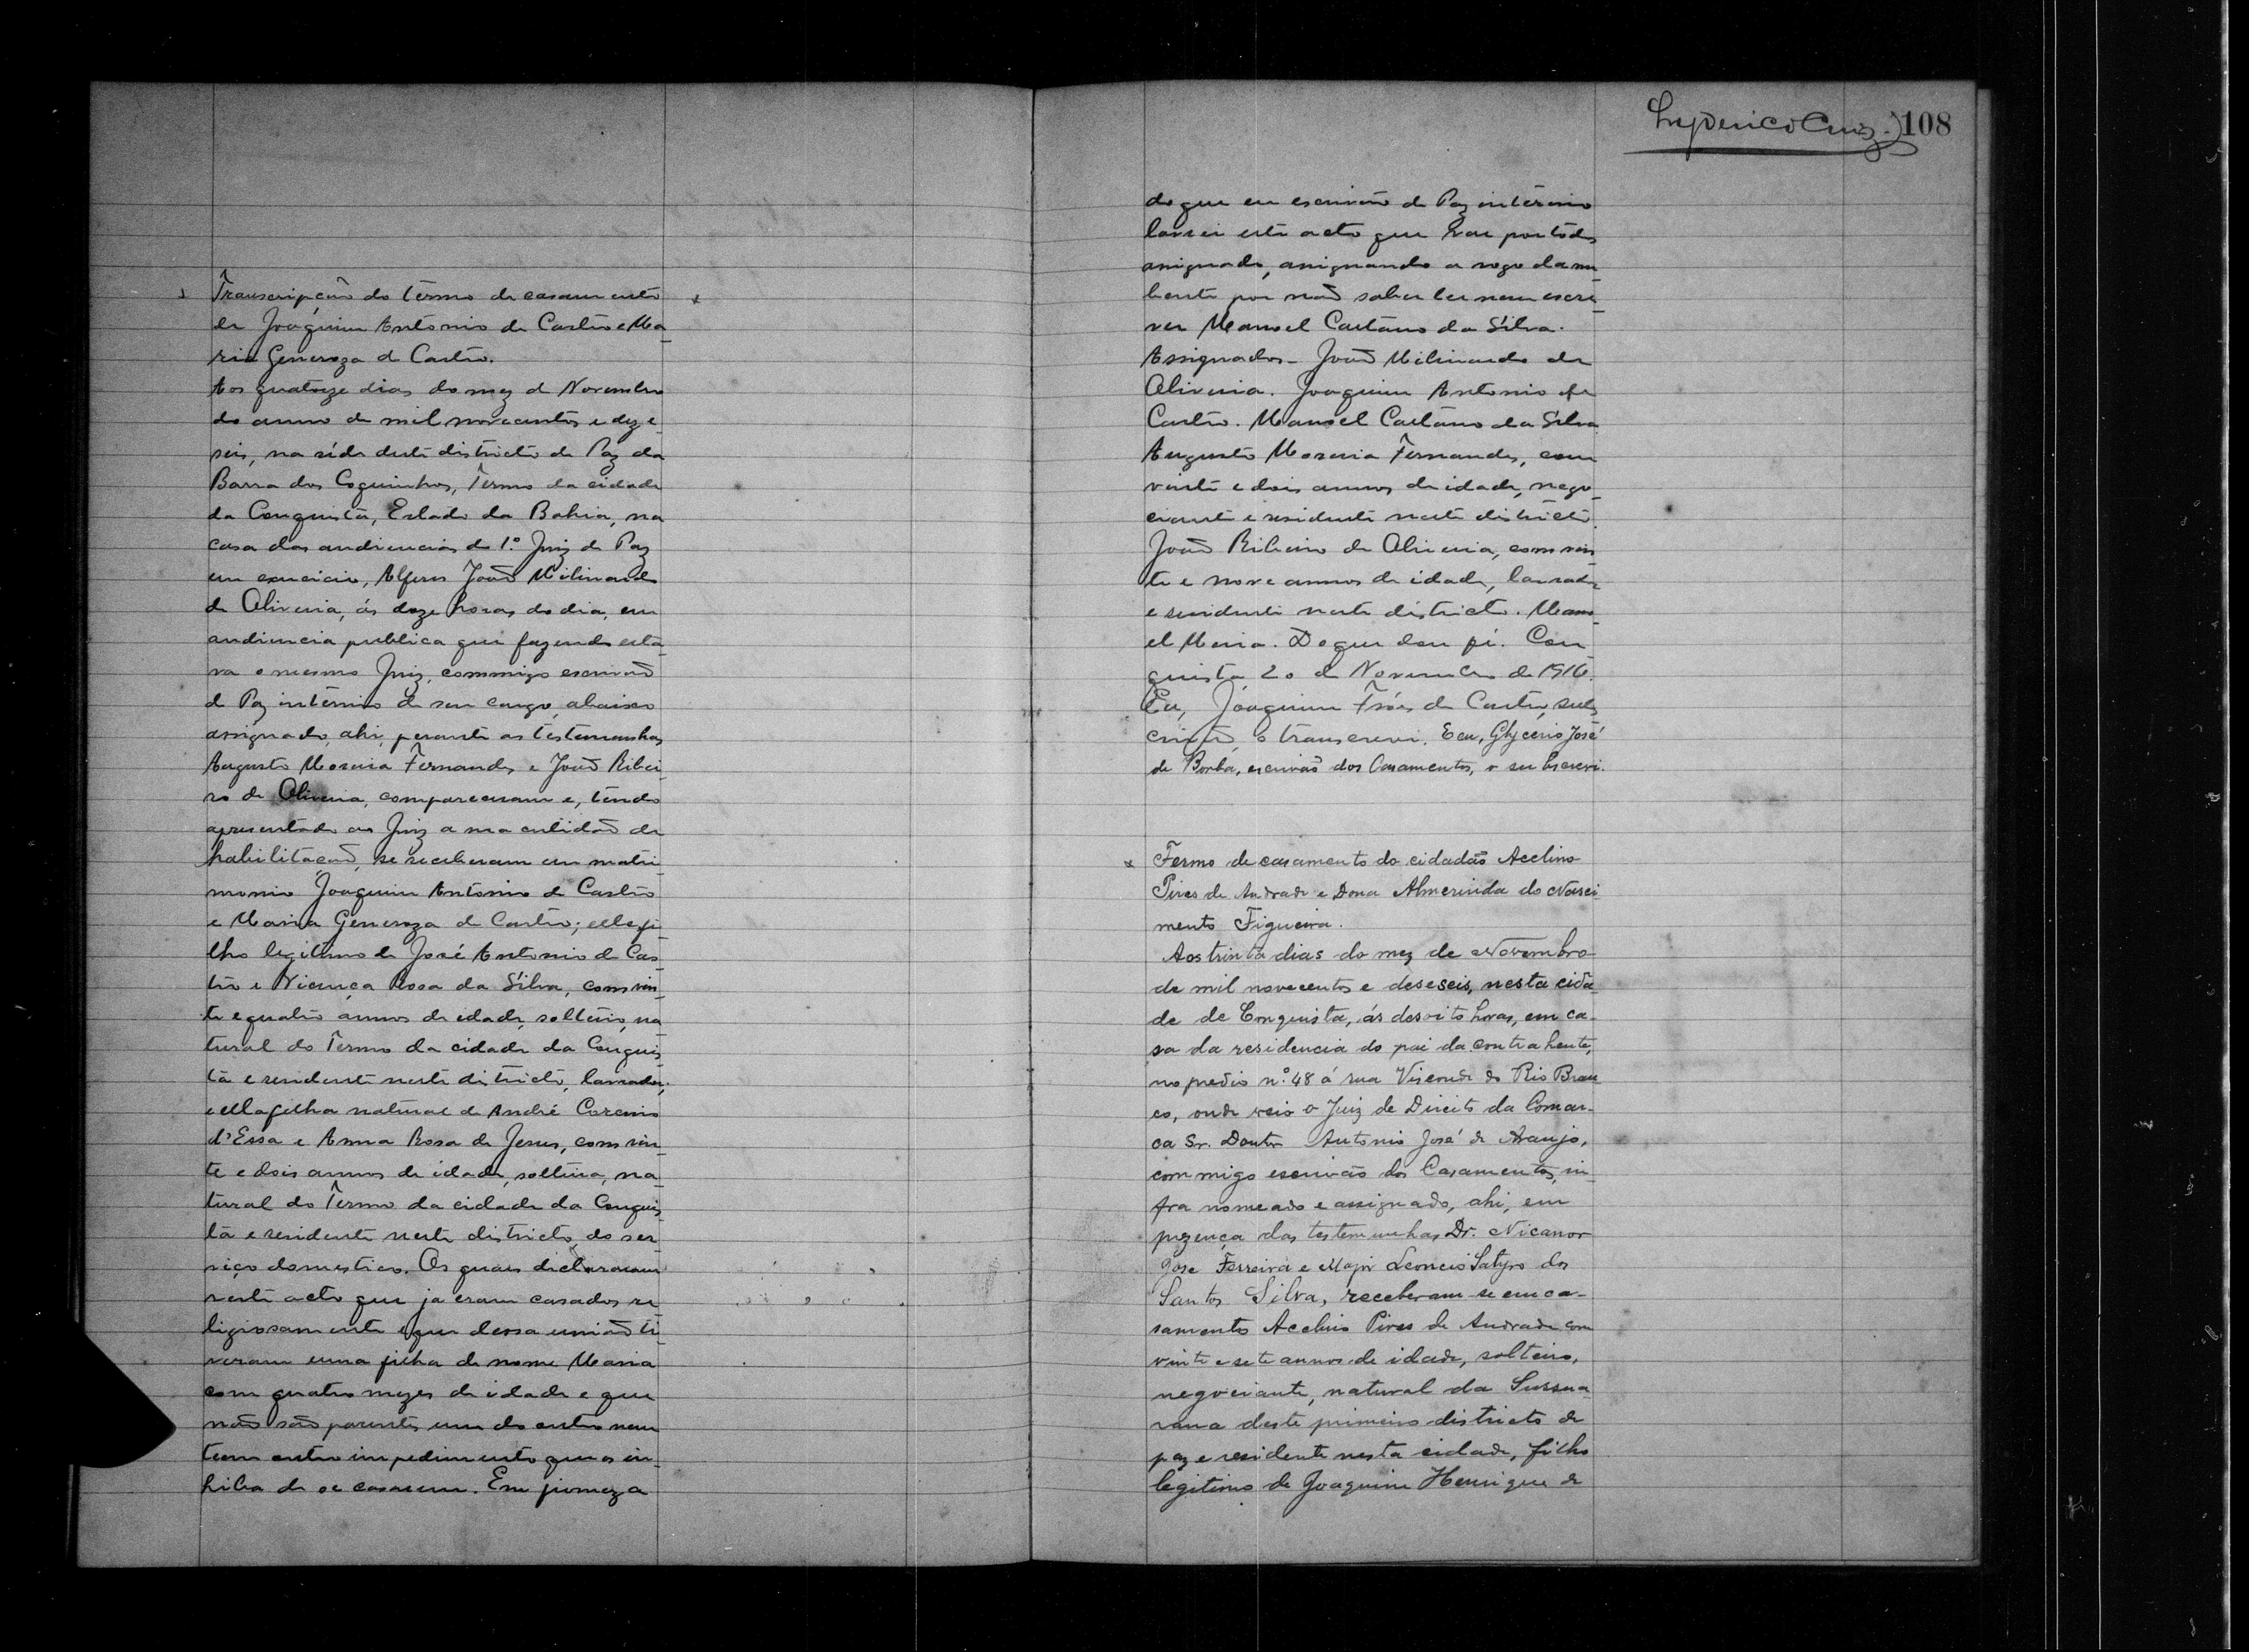 Transcripção do termo de casamento
de Joaquim Antonio de Castro e Ma-
ria Generoza de Castro.
Aos quatorze dias do mez de Novembro
do anno de mil novecentos e deze-
seis, na séde deste districto de Paz da
Barra dos Coquinhos, Termo da cidade
da Conquista, Estado da Bahia, na
casa das audiencias do 1º Juiz de Paz
em exercicio, Alferes João
de Oliveira, ás doze horas do dia, em
audiencia publica que fazendo esta-
va o mesmo Juiz, commigo escrivão
de Paz interino de seu cargo, abaixo
assignado, ahi, perante as testemunhas
Augusto Moreira Fernandes e João Ribei-
ro de Oliveira, compareceram e, tendo
apresentado ao Juiz a sua certidão de
habilitação, se receberam em matri-
monio Joaquim Antonio de Castro
e Maria Generoza de Castro; elle fi-
lho legitimo de José Antonio de Cas-
tro e Rosa da Silva, com vin-
te e quatro annos de edade, solteiro, na-
tural do Termo da cidade da Conquis-
ta e residente neste districto, lavrador;
e ella filha natural de André
d'Essa e Anna Rosa de Jesus, com vin-
te e dois annos de idade, solteira, na-
tural do Termo da cidade da Conquis-
ta e residente neste districto, do ser-
viço domestico. Os quaes declararam
neste acto que ja eram casados re-
ligiosamente e que dessa união ti-
veram uma filha de nome Maria
com quatro mezes de idade e que
não são parentes um do outro nem
tem outro impedimento que os in-
hiba de se casarem. Em firmeza
108
do que eu escrivão de Paz interino
lavrei este acto que vae por todos
assignado, assignando a rogo da nu-
bente por não saber ler nem escre-
ver Manoel Caetano da Silva.
Assignados - João de
Oliveira. Joaquim Antonio de
Castro. Manoel Caetano da Silva
Augusto Moreira Fernandes, com
vinte e dois annos de idade, nego-
ciante e residente neste districto.
João Ribeiro de Oliveira, com vin
te e nove annos de idade, lavrador
e residente neste districto. Mano-
el Do que dou fé. Con
quista, 20 de Novembro de 1916.
Eu, Joaquim Fróes de Castro, subs
cripto, o transcrevi. E eu, Glycerio José
de Borba, escrivão dos Casamentos, o subscrevi.
Termo de casamento do cidadão Acelino
Pires de Andrade e Dona Almerinda do Nasci
mento Figueira.
Aos trinta dias do mez de Novembro
de mil novecentos e deseseis, nesta cida-
de de Conquista, ás desoito horas, em ca-
sa da residencia do pai da contrahente,
no predio nº 48 á rua Visconde do Rio Bran
co, onde veio o Juiz de Direito da Comar-
ca Sr. Doutor Antonio José de Araujo,
commigo escrivão dos Casamentos, in-
fra nomeado e assignado, ahi, em
prezença das testemunhas Dr. Nicanor
José Ferreira e Major Leoncio Satyro dos
Santos Silva, receberam-se em ca-
samento Acelino Pires de Andrade com
vinte e sete annos de idade, solteiro,
negociante, natural da Sussua-
rana deste primeiro districto de
paz e residente nesta cidade, filho
legitimo de Joaquim Henrique de